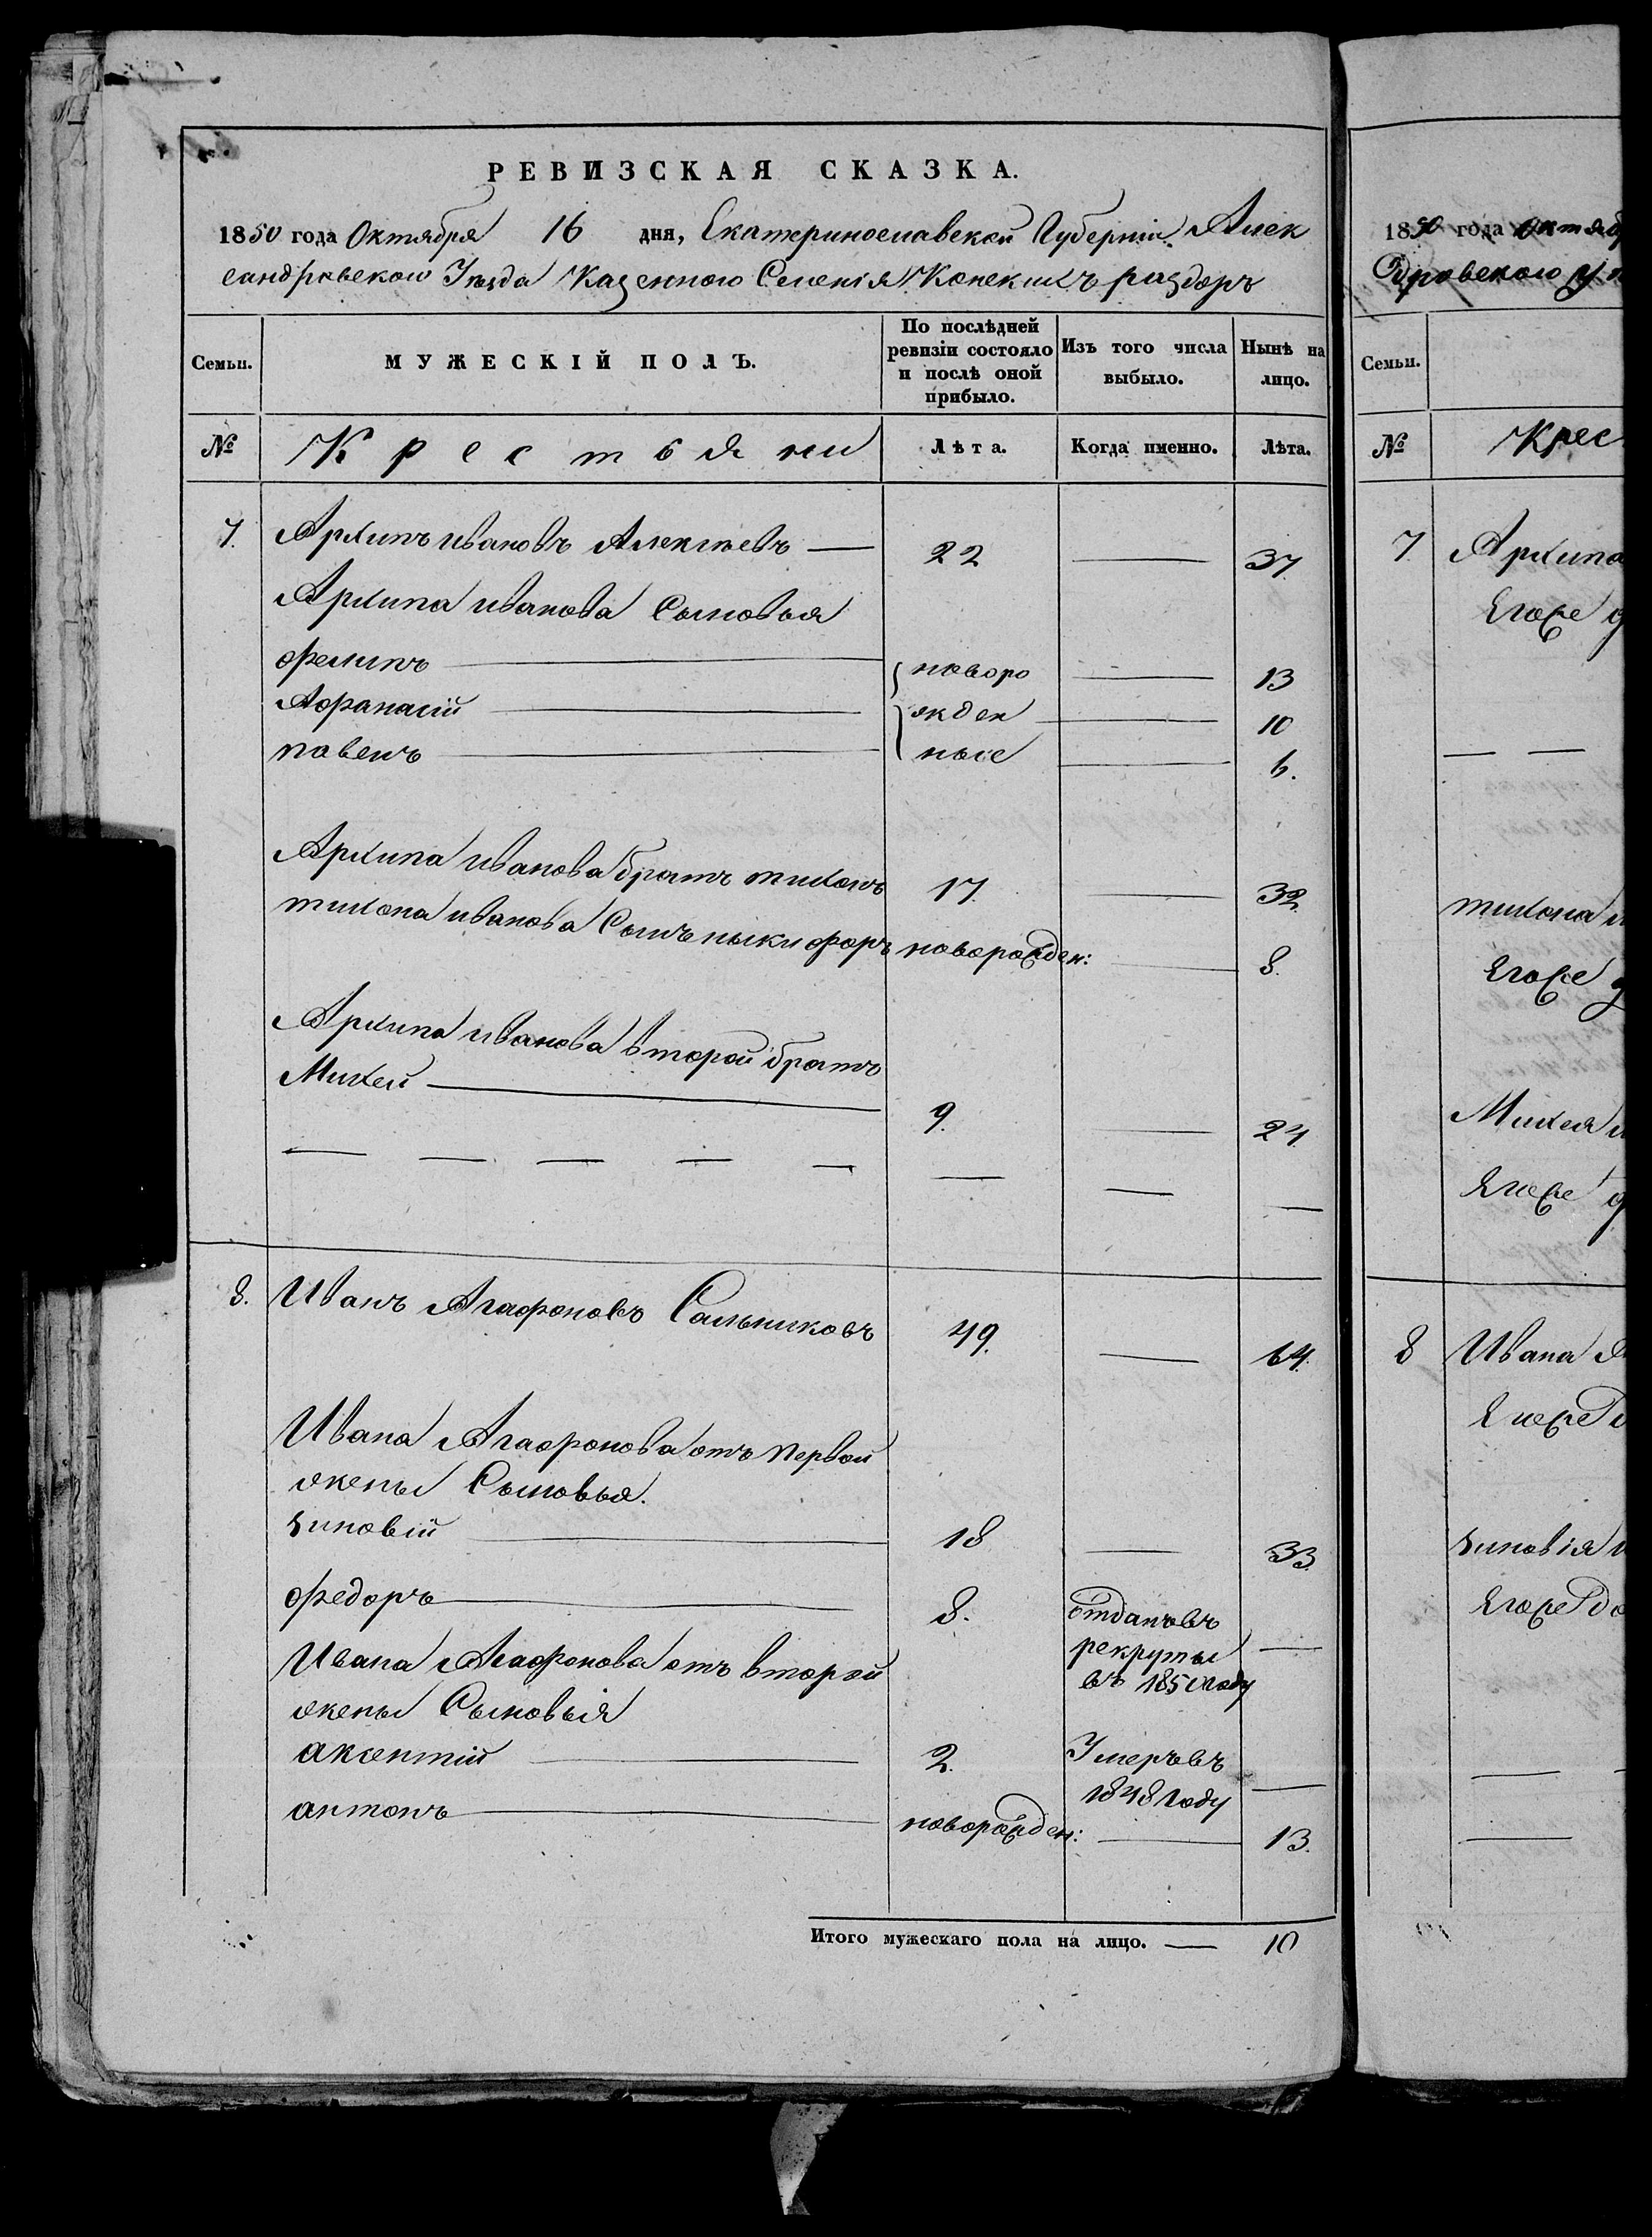 РЕВИЗСКАЯ СКАЗКА.
1850 года Октября 16 дня, Екатеринославской Губерніи Алек
сандровскаго Уѣзда Казенного Селенія Конскихъ раздоръ
Семьи.
МУЖЕСКІЙ ПОЛЪ.
По послѣдней ревизіи состояло и послѣ оной прибыло.
Изъ того числа выбыло.
Нынѣ на лицо.
№ Крестьяни Лѣта. Когда именно. Лѣта.
7. Архипъ ивановъ Алексѣевъ — 22 — 37.
Архипа иванова Сыновья
филипъ — новоро — 13
Афанасій — жден — 10
павелъ — ные — 6.
Архипа иванова братъ тихонъ 17. — 32.
тихона иванова Сынъ никифоръ новорожден: — 8.
Архипа иванова второй братъ
Михей — 9. — 24.
— — — — — — — —
8. Иванъ Агафоновъ Сальниковъ 49. — 64.
Ивана Агафонова отъ первой
жены Сыновья.
зиновій — 18 — 33.
федоръ — 8. отданъ въ
рекруты —
въ 1850 году
Ивана Агафонова отъ второй
жены Сыновья
аксентій — 2. Умеръ въ
1848 Году —
антонъ — новорожден: — 13.
Итого мужескаго пола на лицо. — 10
1850 года октяб
дровского у
Семьи.
№ Крес
7. Архипа
Егоже
— —
тихона и
Егоже
Михея и
Егоже
8 Ивана А
Егоже
зиновія и
Егоже до
—
—